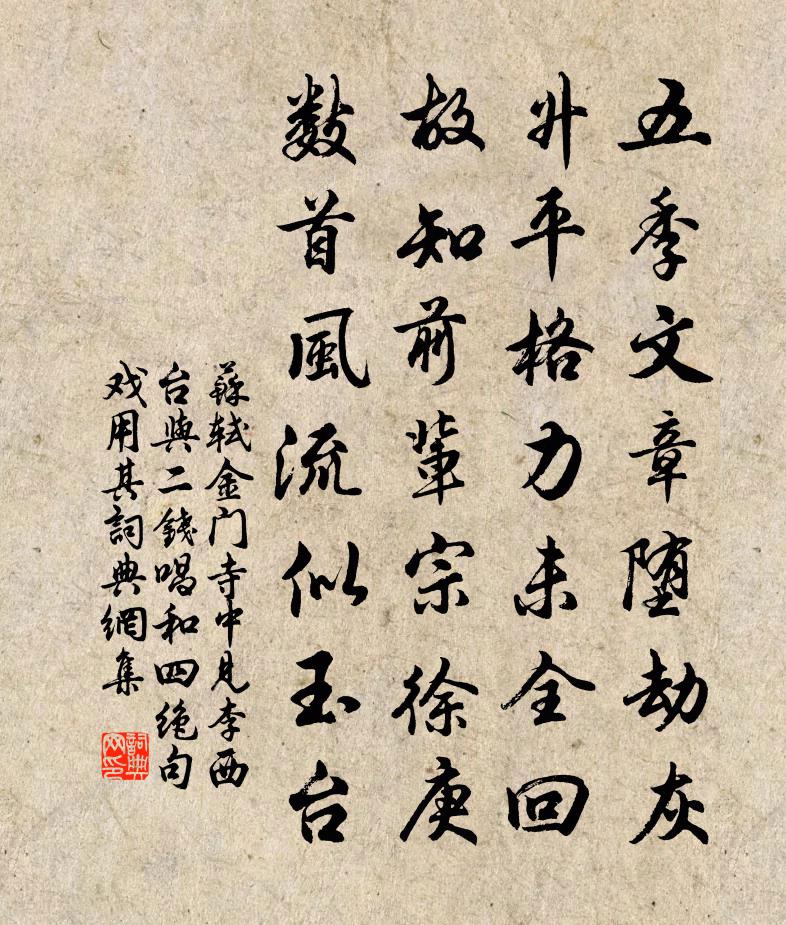 五季文章堕劫灰
升平格力未全回
故知前輩宗徐庾
数首風流似玉台
蘇軾金门寺中見李西
台與二錢唱和四绝句
戏用其詞典網集
詞典网印